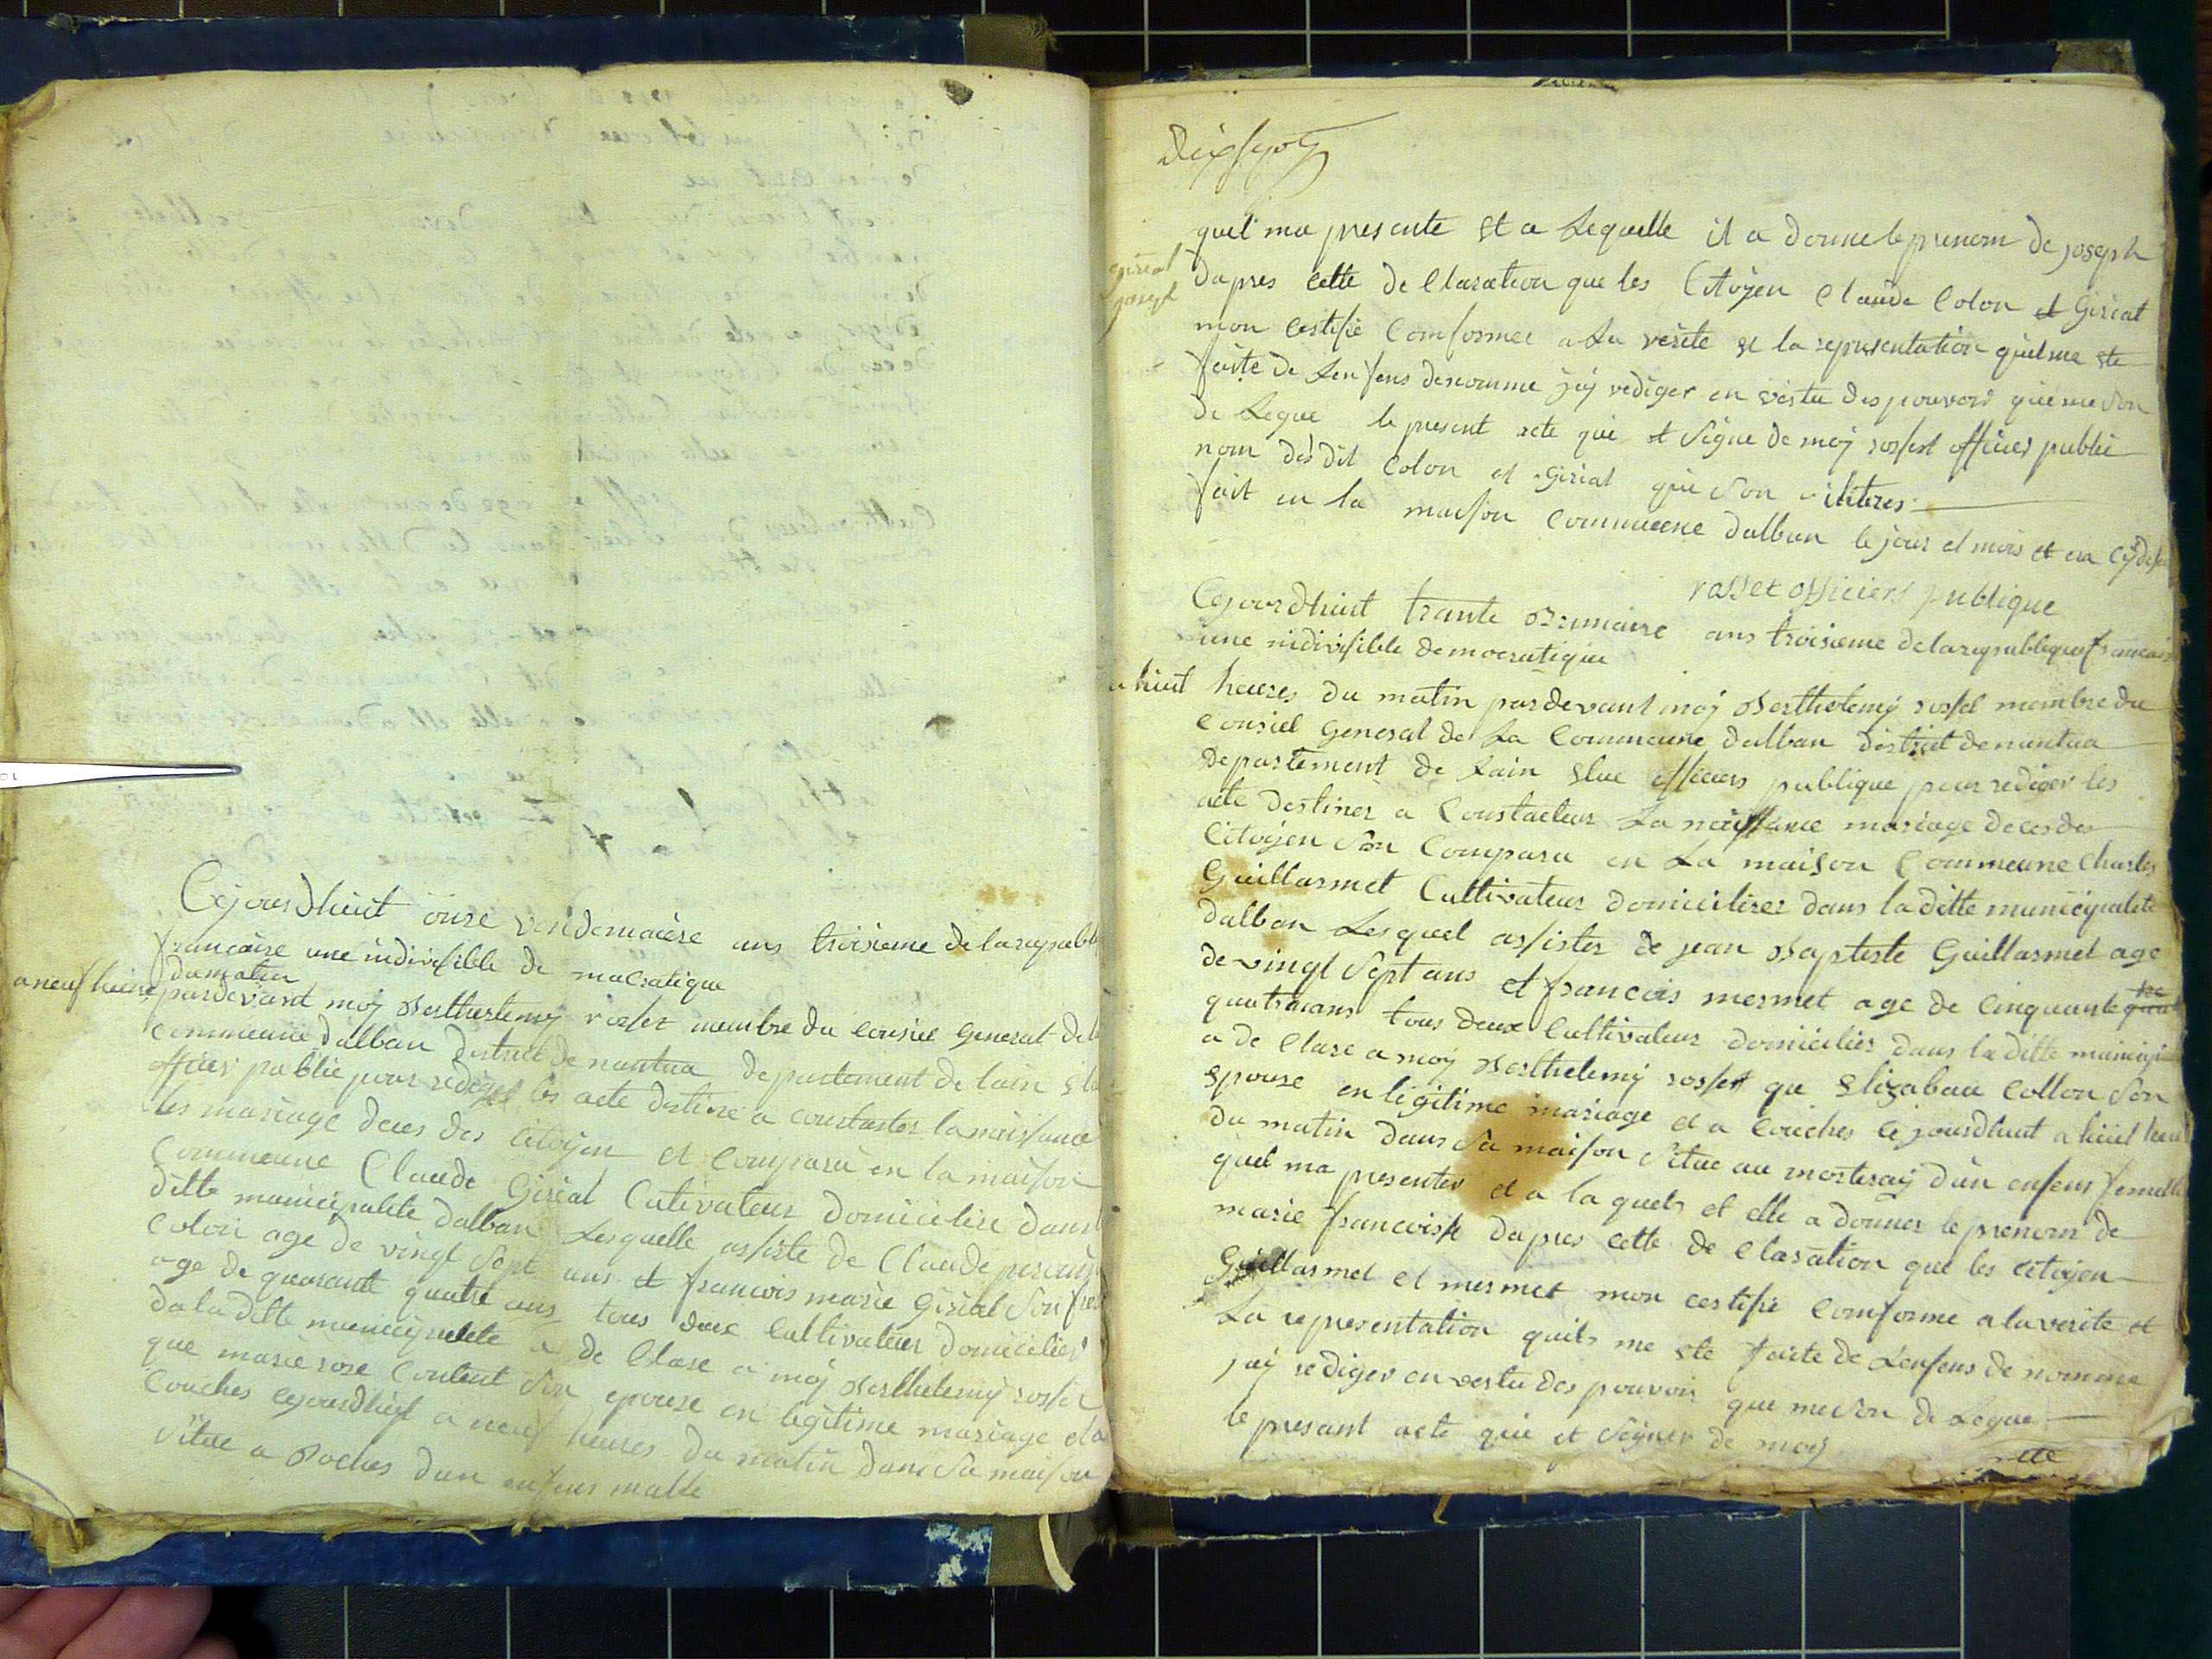 Cejourdhuit onze vendemaiere ans troisieme de la repub
francaise une indivisible de mocratique
a neuf heure du matin
pardevant moÿ Berthelemÿ rosset membre du consiel General de la
commeune dalban district de nantua departement de lain elu
officier public pour rediger les acte destine a constater la naissance
les mariage deces des citoÿen et comparu en la maison
commeune Claude Girial Cultivateur domicilire dans
ditte municipalite dalban Lesquelle assiste de Claude
Colon age de vingt sept ans et francois marie Girial son frer
age de quarante quatre ans tous deux cultivateur domicilier
da la ditte municipalite a de Clare a moÿ Berthelemÿ rosset
que marie rose Content son epouse en legitime mariage et a
couches cejourdhuit a neuf heures du matin dans sa maison
situe a Roches dun enfens malle
Dixsept
quil ma presente et a Lequelle il a donne le prenom de joseph
girial
joseph
dapres cette de Claration que les Citoÿen Claude Colon et Girial
mon certifie comformee a La verite et la representation quil me ete
faite de Lenfens denomme jaÿ rediger en vertu des pouvoir que me son
de Legue le present acte que et signe de moÿ rosset officier public
nom des dit Colon et Girial qui son iliteres
fait en la maison commeune dalban le jour et mois et an cÿ de
rosset officiers publique
Cejourdhuit trante Brumaire ans troisieme de la republique francais
une indivisible democratique
a huit heures du matin pardevant moÿ Berthelemÿ rosset membre du
Consiel General de La Commeune dalban district de nantua
departement de Lain elue officiers publique pour rediger les
acte destiner a Constateur La naissance mariage deces des
Citoÿen son Comparu en La maison Commeune Charles
Guillarmet Cultivateur domicilirer dans la ditte municipalite
dalban Lesquel assister de jean Bapteste Guillarmet age
de vingt sept ans et francois mermet age de cinquante
quatreans tous deux Cultivateur domicilies dans la ditte municipa
a de Clare a moÿ Berthelemÿ rosset que Elizabau Collon son
epouse en legitime mariage et a couches cejourdhuit a huit heur
du matin dans sa maison situe au morteraÿ dun enfens femelle
quil ma presenter et a la quels et elle a donner le prenom de
marie francoisse dapres cette de Claration que les citoÿen
Guillarmet et mermet mon certifie comforme a la verite et
La representation quils me ete faite de Lenfens de nomme
jaÿ rediger en vertu des pouvoir que me son de Legue
le presant acte que et signer de moÿ